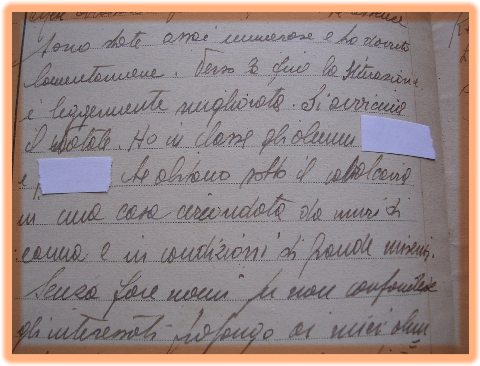 assenze
sono state assai numerose e ho dovuto
lamentarmene. Verso la fine la situazione
è leggermente migliorata. Si avvicina
il Natale. Ho in classe gli alunni
e che abitano sotto il cavalcavia
in una casa circondata da muri di
canna e in condizioni di grande miseria.
Senza fare nomi per non confondere
gli interessati propongo ai miei alun